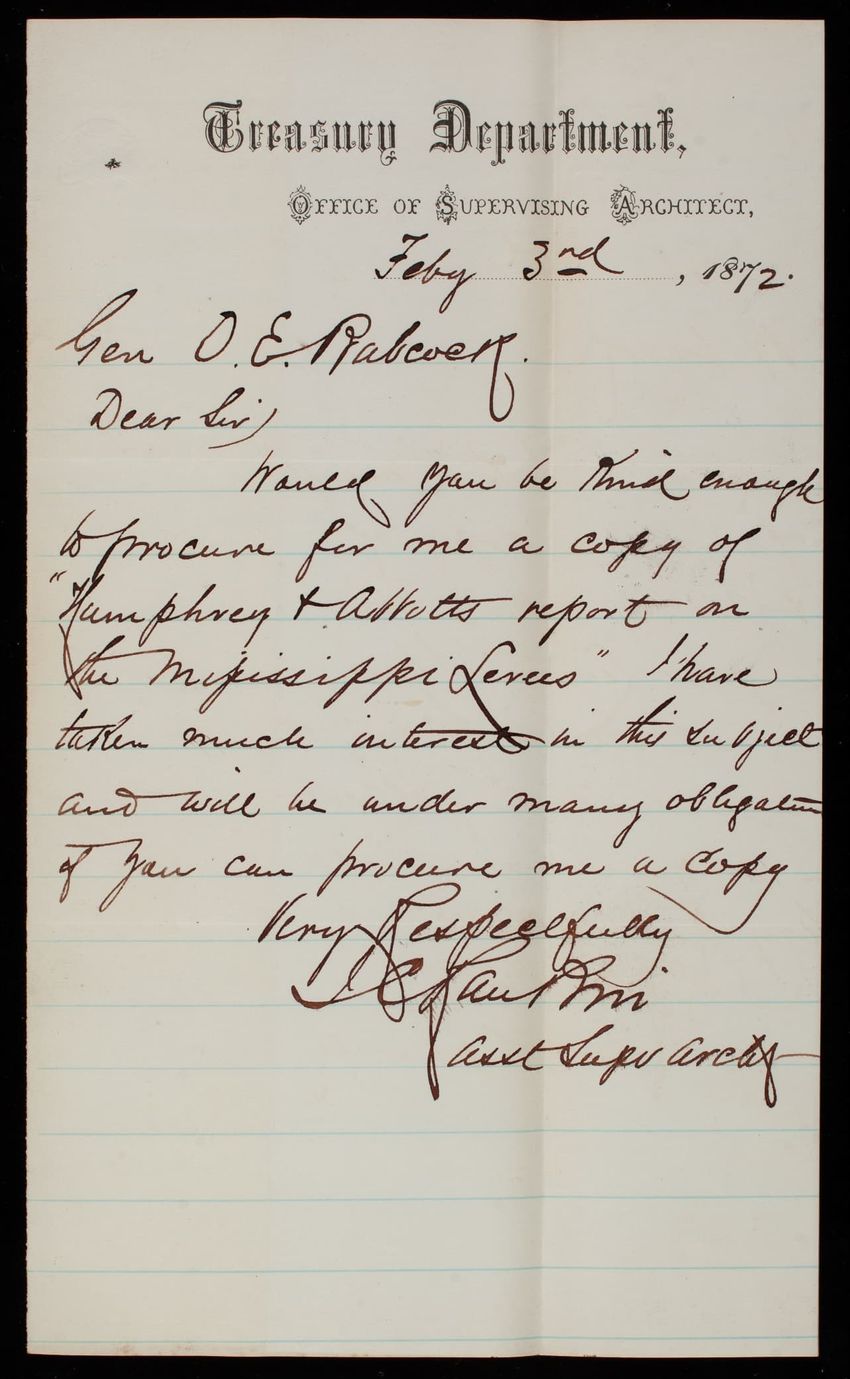 Treasury Department,
Office of Supervising Architect,
Feby 3rd, 1872.
Gen O. E. Babcock.
Dear Sir,
Would you be Kind enough
to procure for me a copy of
"Humphrey & Abbotts report on
the Mississippi Levees" I have
taken much interest in this subject
and will be under many obligation
if you can procure me a copy
Very Respectfully
J C Rankin
Asst Supv Archt